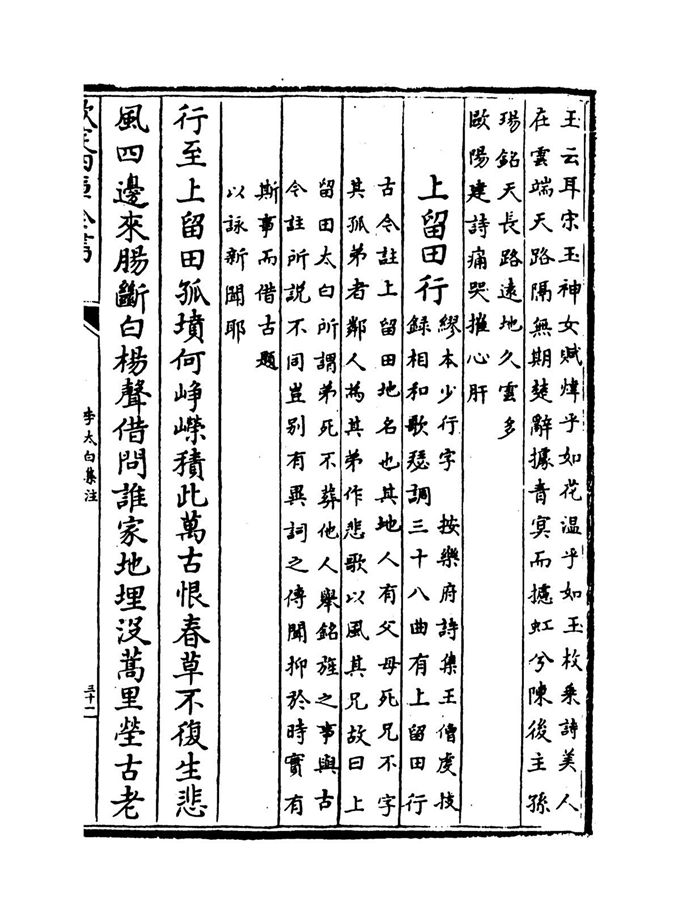 玉云耳宋玉神女賦煒乎如花温乎如玉枚乗詩美人
在雲端天路隔無期楚辭據青冥而攄虹兮陳後主孫
瑒銘天長路遠地久雲多
歐陽建詩痛哭摧心肝
上留田行
繆本少行字　按樂府詩集王僧虔技
録相和歌瑟調三十八曲有上留田行
古今註上留田地名也其地人有父母死兄不字
其孤弟者鄰人為其弟作悲歌以風其兄故曰上
留田太白所謂弟死不葬他人舉銘旌之事與古
今註所説不同豈别有異詞之傳聞抑於時實有
斯事而借古題
以詠新聞耶
行至上留田孤墳何崢嶸積此萬古恨春草不復生悲
風四邊來腸斷白楊聲借問誰家地埋没蒿里塋古老
欽定四庫全書
李太白集注
三十二